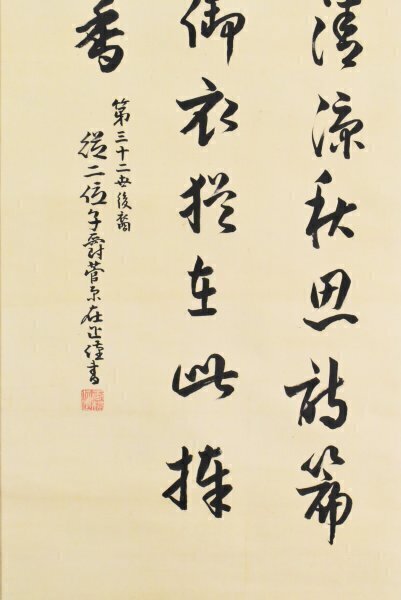 清涼秋思詩篇
御衣猶在此捧
香
第三十二世後裔
從二位子爵菅原在正謹書